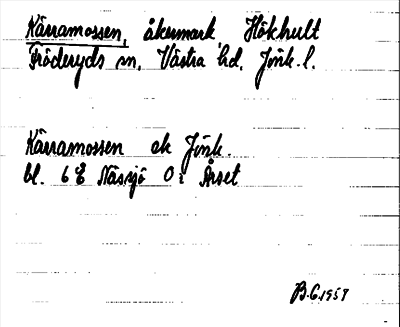 Kärramossen, åkermark Hökhult
Fröderyds sn, Västra hd, Jönk. l.
Kärramossen ek Jönk.
bl. 6 E Nässjö 0 i Årset
B.G. 1957